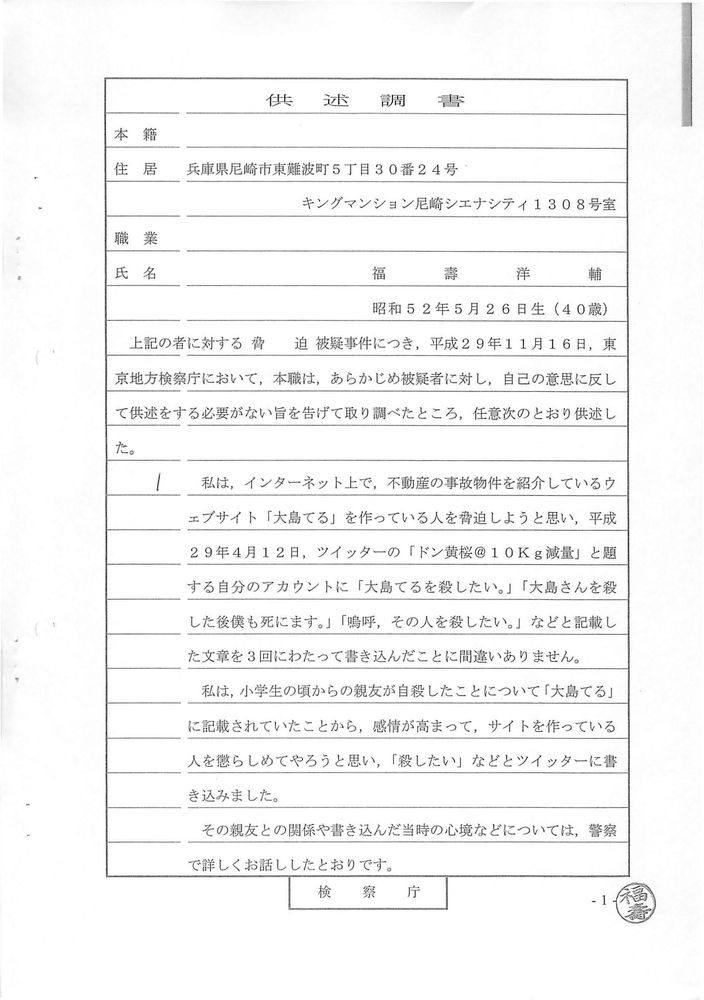 供述調書
本籍
住居 兵庫県尼崎市東難波町5丁目30番24号
キングマンション尼崎シエナシティ1308号室
職業
氏名 福壽洋輔
昭和52年5月26日生（40歳）
上記の者に対する 脅 迫 被疑事件につき，平成29年11月16日，東
京地方検察庁において，本職は，あらかじめ被疑者に対し，自己の意思に反し
て供述をする必要がない旨を告げて取り調べたところ，任意次のとおり供述し
た。
1 私は，インターネット上で，不動産の事故物件を紹介しているウ
ェブサイト「大島てる」を作っている人を脅迫しようと思い，平成
29年4月12日，ツイッターの「ドン黄桜@10Kg減量」と題
する自分のアカウントに「大島てるを殺したい。」「大島さんを殺
した後僕も死にます。」「嗚呼，その人を殺したい。」などと記載し
た文章を3回にわたって書き込んだことに間違いありません。
私は，小学生の頃からの親友が自殺したことについて「大島てる」
に記載されていたことから，感情が高まって，サイトを作っている
人を懲らしめてやろうと思い，「殺したい」などとツイッターに書
き込みました。
その親友との関係や書き込んだ当時の心境などについては，警察
で詳しくお話ししたとおりです。
検察庁
-1-
福壽